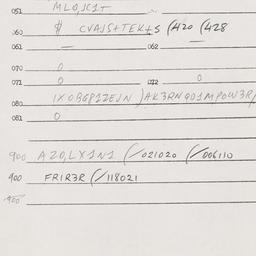 051 MLO,JC1T
060 $ CVAJS+TEK+S (/420 (/428
061 — 062 —
070 0
071 0 072 0
080 IXOBGP1ZEJN )AK3RN901MPOW3R/
081 0
900 AZ0,LX1N1 (/021020 (/006110
900 FR1R3R (/118021
950